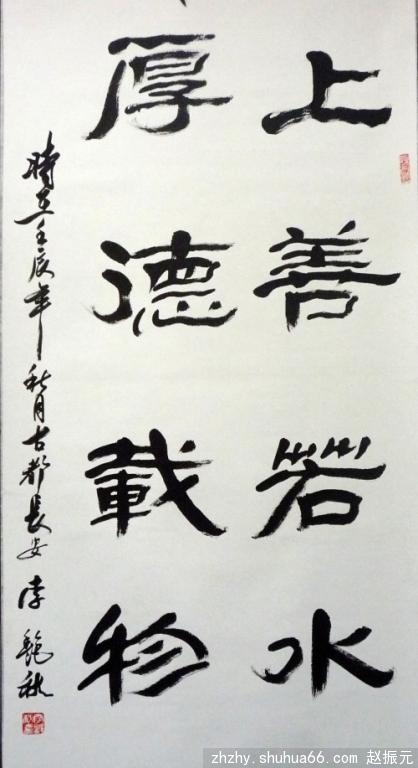 上善若水
厚德載物
時在壬辰年秋月古都長安李艳秋
zhzhy.shuhua66.com 赵振元